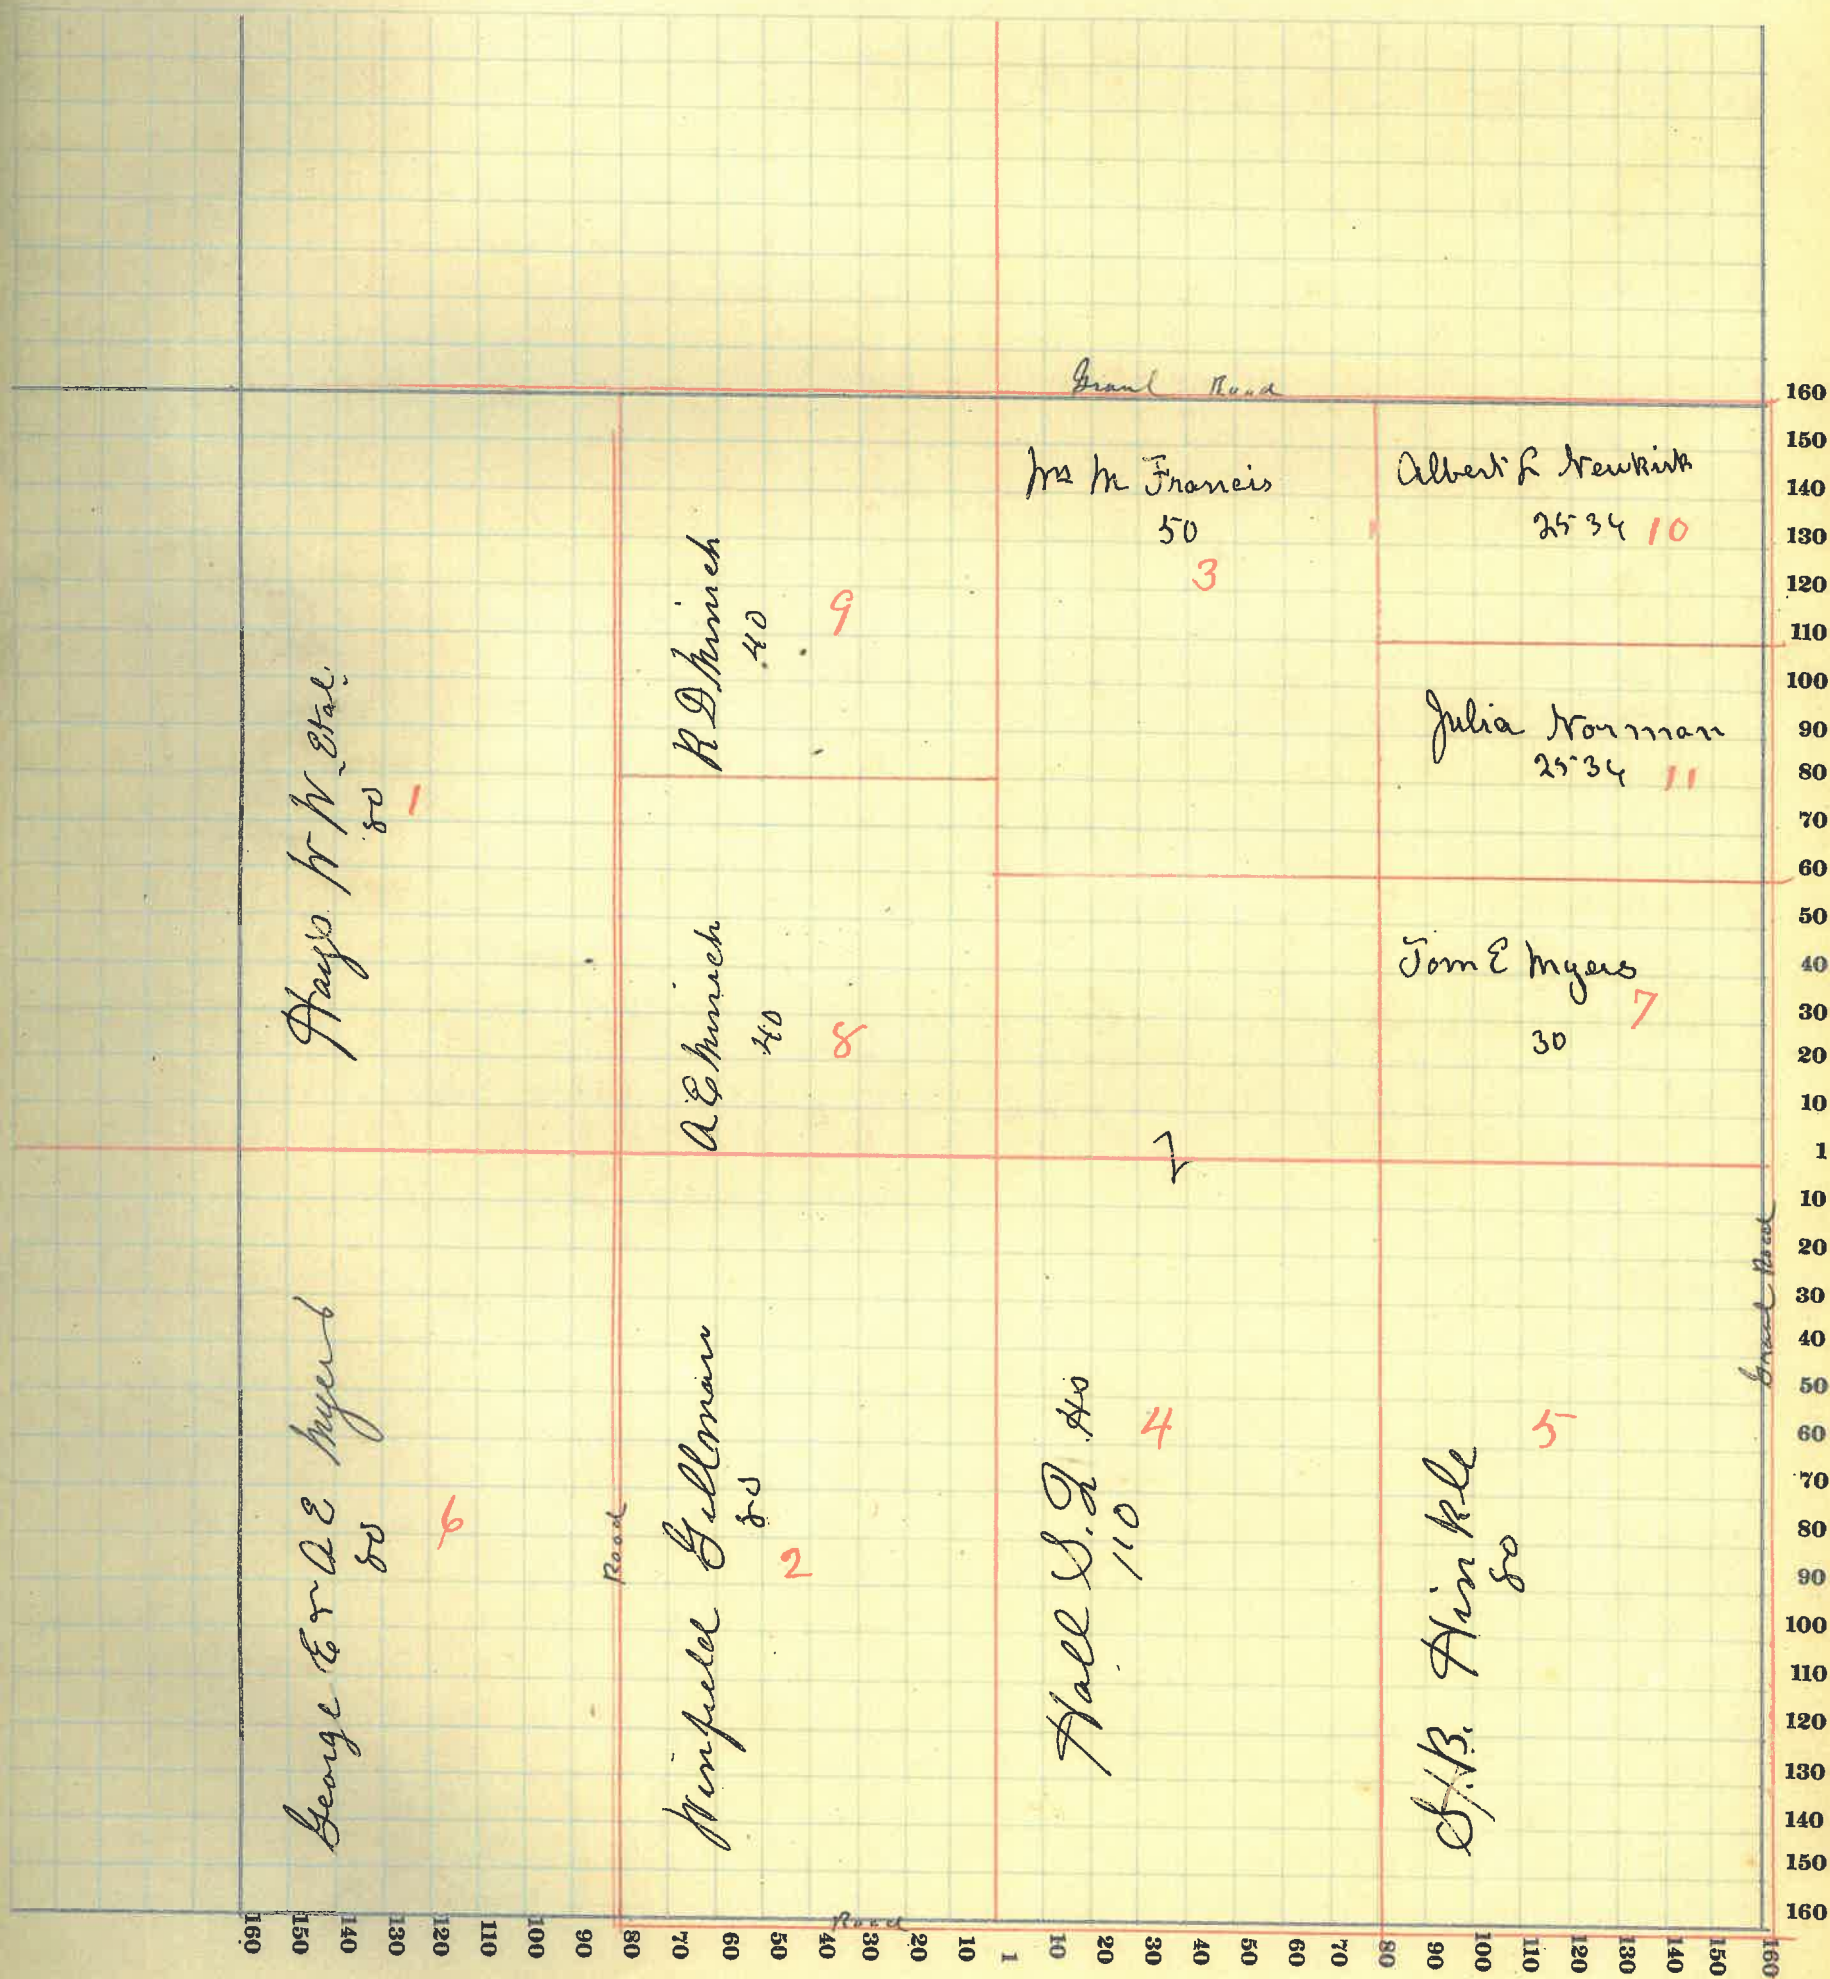 Gravel Road
Mrs M Francis
50
3
Albert L Newkirk
25 34 10
Julia Norman
25 34 11
Tom E Myers
7
30
R D Minich
40
9
A E Minich
40
8
Hays W W Etal.
80
1
George E & A E Myers
80
6
Road
Winfield Gillman
80
2
Hall S. F. Hs
110
4
S. B. Hinkle
80
5
Gravel Road
Road
160
150
140
130
120
110
100
90
80
70
60
50
40
30
20
10
1
10
20
30
40
50
60
70
80
90
100
110
120
130
140
150
160
160 150 140 130 120 110 100 90 80 70 60 50 40 30 20 10 1 10 20 30 40 50 60 70 80 90 100 110 120 130 140 150 160